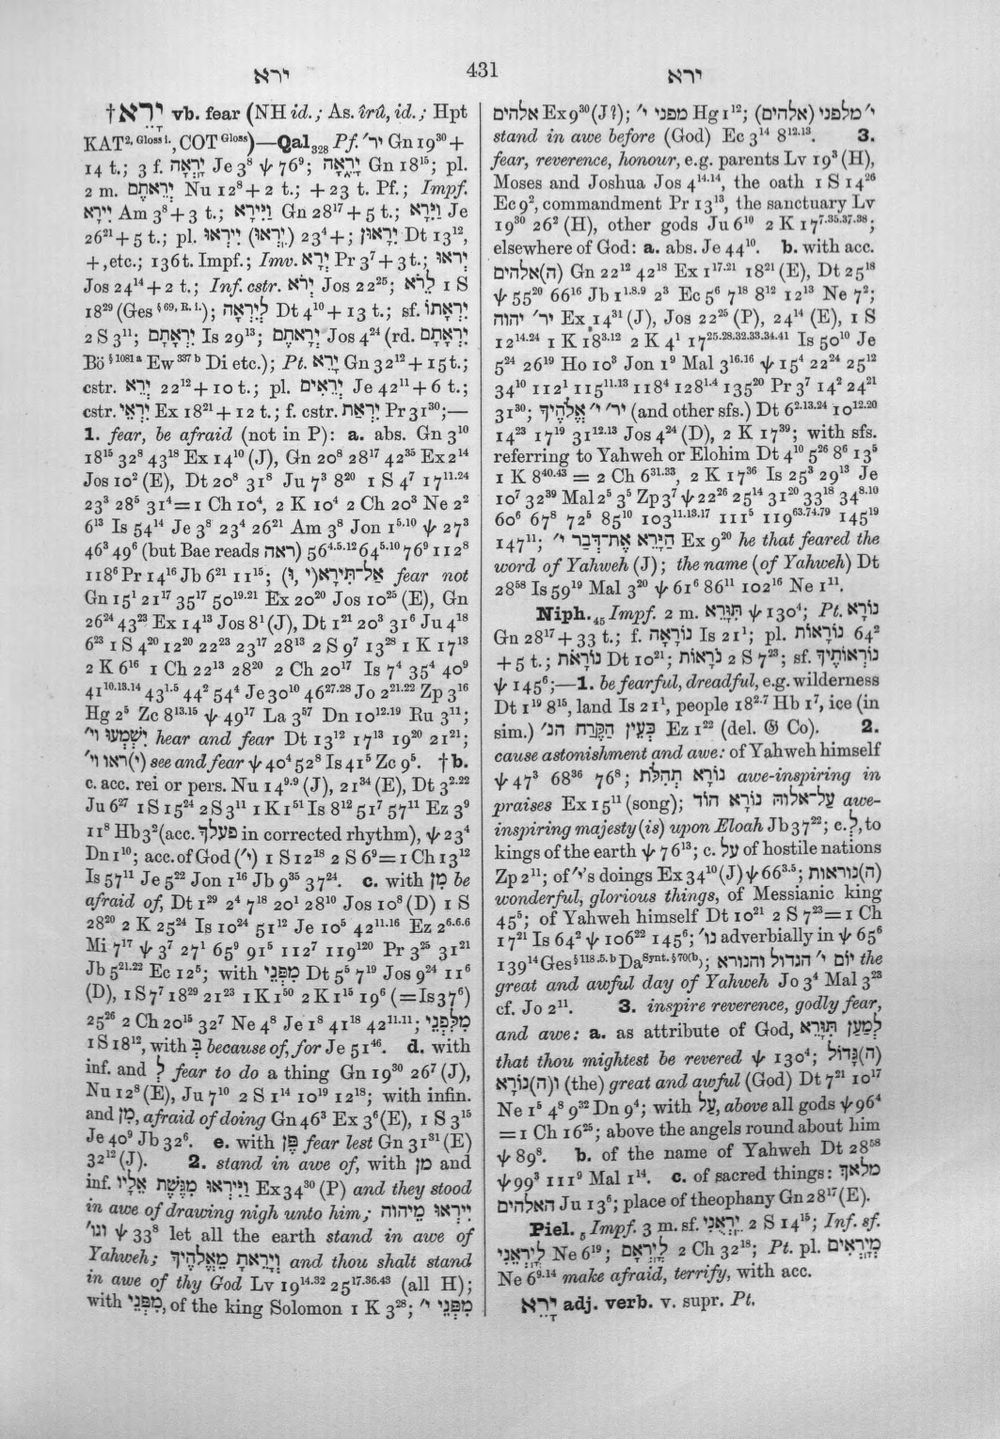 ירא
431
ירא
†יָרֵא vb. fear (NH id.; As. îrû, id.; Hpt
KAT², Gloss 1., COT Gloss)—Qal₃₂₈ Pf. יר׳ Gn 19³⁰ +
14 t.; 3 f. יָרְאָה Je 3⁸ ψ 76⁹; יָרֵאָה Gn 18¹⁵; pl.
2 m. יְרֵאתֶם Nu 12⁸ + 2 t.; + 23 t. Pf.; Impf.
יִירָא Am 3⁸ + 3 t.; וַיִּירָא Gn 28¹⁷ + 5 t.; וַיִּרָא Je
26²¹ + 5 t.; pl. יִירְאוּ (יִרְאוּ) 23⁴ +; יִרָאוּן Dt 13¹²,
+, etc.; 136 t. Impf.; Imv. יְרָא Pr 3⁷ + 3 t.; יְראוּ
Jos 24¹⁴ + 2 t.; Inf. cstr. יְרֹא Jos 22²⁵; לֵרֹא 1 S
18²⁹ (Ges § 69, R. 1.); לְיִרְאָה Dt 4¹⁰ + 13 t.; sf. יִרְאָתוֹ
2 S 3¹¹; יִרְאָתָם Is 29¹³; יִרְאָתֶם Jos 4²⁴ (rd. יִרְאָתָם
Bö § 1081 a Ew 337 b Di etc.); Pt. יָרֵא Gn 32¹² + 15 t.;
cstr. יְרֵא 22¹² + 10 t.; pl. יְרֵאִים Je 42¹¹ + 6 t.;
cstr. יִרְאֵי Ex 18²¹ + 12 t.; f. cstr. יִרְאַת Pr 31³⁰;—
1. fear, be afraid (not in P): a. abs. Gn 3¹⁰
18¹⁵ 32⁸ 43¹⁸ Ex 14¹⁰ (J), Gn 20⁸ 28¹⁷ 42³⁵ Ex 2¹⁴
Jos 10² (E), Dt 20⁸ 31⁸ Ju 7³ 8²⁰ 1 S 4⁷ 17¹¹·²⁴
23³ 28⁵ 31⁴ = 1 Ch 10⁴, 2 K 10⁴ 2 Ch 20³ Ne 2²
6¹³ Is 54¹⁴ Je 3⁸ 23⁴ 26²¹ Am 3⁸ Jon 1⁵·¹⁰ ψ 27³
46³ 49⁶ (but Bae reads ראה) 56⁴·⁵·¹² 64⁵·¹⁰ 76⁹ 112⁸
118⁶ Pr 14¹⁶ Jb 6²¹ 11¹⁵; אַל־תִּירָא(י, וּ) fear not
Gn 15¹ 21¹⁷ 35¹⁷ 50¹⁹·²¹ Ex 20²⁰ Jos 10²⁵ (E), Gn
26²⁴ 43²³ Ex 14¹³ Jos 8¹ (J), Dt 1²¹ 20³ 31⁶ Ju 4¹⁸
6²³ 1 S 4²⁰ 12²⁰ 22²³ 23¹⁷ 28¹³ 2 S 9⁷ 13²⁸ 1 K 17¹³
2 K 6¹⁶ 1 Ch 22¹³ 28²⁰ 2 Ch 20¹⁷ Is 7⁴ 35⁴ 40⁹
41¹⁰·¹³·¹⁴ 43¹·⁵ 44² 54⁴ Je 30¹⁰ 46²⁷·²⁸ Jo 2²¹·²² Zp 3¹⁶
Hg 2⁵ Zc 8¹³·¹⁵ ψ 49¹⁷ La 3⁵⁷ Dn 10¹²·¹⁹ Ru 3¹¹;
יִשְׁמְעוּ וי׳ hear and fear Dt 13¹² 17¹³ 19²⁰ 21²¹;
(י)ראו וי׳ see and fear ψ 40⁴ 52⁸ Is 41⁵ Zc 9⁵. † b.
c. acc. rei or pers. Nu 14⁹·⁹ (J), 21³⁴ (E), Dt 3²·²²
Ju 6²⁷ 1 S 15²⁴ 2 S 3¹¹ 1 K 1⁵¹ Is 8¹² 51⁷ 57¹¹ Ez 3⁹
11⁸ Hb 3² (acc. פעלך in corrected rhythm), ψ 23⁴
Dn 1¹⁰; acc. of God (י׳) 1 S 12¹⁸ 2 S 6⁹ = 1 Ch 13¹²
Is 57¹¹ Je 5²² Jon 1¹⁶ Jb 9³⁵ 37²⁴. c. with מִן be
afraid of, Dt 1²⁹ 2⁴ 7¹⁸ 20¹ 28¹⁰ Jos 10⁸ (D) 1 S
28²⁰ 2 K 25²⁴ Is 10²⁴ 51¹² Je 10⁵ 42¹¹·¹⁶ Ez 2⁶·⁶·⁶
Mi 7¹⁷ ψ 3⁷ 27¹ 65⁹ 91⁵ 112⁷ 119¹²⁰ Pr 3²⁵ 31²¹
Jb 5²¹·²² Ec 12⁵; with מִפְּנֵי Dt 5⁵ 7¹⁹ Jos 9²⁴ 11⁶
(D), 1 S 7⁷ 18²⁹ 21²³ 1 K 1⁵⁰ 2 K 1¹⁵ 19⁶ (= Is 37⁶)
25²⁶ 2 Ch 20¹⁵ 32⁷ Ne 4⁸ Je 1⁸ 41¹⁸ 42¹¹·¹¹; מִלִּפְנֵי
1 S 18¹², with בְּ because of, for Je 51⁴⁶. d. with
inf. and לְ fear to do a thing Gn 19³⁰ 26⁷ (J),
Nu 12⁸ (E), Ju 7¹⁰ 2 S 1¹⁴ 10¹⁹ 12¹⁸; with infin.
and מִן, afraid of doing Gn 46³ Ex 3⁶ (E), 1 S 3¹⁵
Je 40⁹ Jb 32⁶. e. with פֶּן fear lest Gn 31³¹ (E)
32¹² (J). 2. stand in awe of, with מן and
inf. וַיִּירְאוּ מִגֶּשֶׁת אֵלָיו Ex 34³⁰ (P) and they stood
in awe of drawing nigh unto him; יִירְאוּ מֵיהוה
וגו׳ ψ 33⁸ let all the earth stand in awe of
Yahweh; וְיָרֵאתָ מֵאֱלֹהֶיךָ and thou shalt stand
in awe of thy God Lv 19¹⁴·³² 25¹⁷·³⁶·⁴³ (all H);
with מִפְּנֵי, of the king Solomon 1 K 3²⁸; מִפְּנֵי י׳
אלהים Ex 9³⁰ (J?); מפני י׳ Hg 1¹²; מלפני (אלהים) י׳
stand in awe before (God) Ec 3¹⁴ 8¹²·¹³. 3.
fear, reverence, honour, e.g. parents Lv 19³ (H),
Moses and Joshua Jos 4¹⁴·¹⁴, the oath 1 S 14²⁶
Ec 9², commandment Pr 13¹³, the sanctuary Lv
19³⁰ 26² (H), other gods Ju 6¹⁰ 2 K 17⁷·³⁵·³⁷·³⁸;
elsewhere of God: a. abs. Je 44¹⁰. b. with acc.
(ה)אלהים Gn 22¹² 42¹⁸ Ex 1¹⁷·²¹ 18²¹ (E), Dt 25¹⁸
ψ 55²⁰ 66¹⁶ Jb 1¹·⁸·⁹ 2³ Ec 5⁶ 7¹⁸ 8¹² 12¹³ Ne 7²;
יר׳ יהוה Ex 14³¹ (J), Jos 22²⁵ (P), 24¹⁴ (E), 1 S
12¹⁴·²⁴ 1 K 18³·¹² 2 K 4¹ 17²⁵·²⁸·³²·³³·³⁴·⁴¹ Is 50¹⁰ Je
5²⁴ 26¹⁹ Ho 10³ Jon 1⁹ Mal 3¹⁶·¹⁶ ψ 15⁴ 22²⁴ 25¹²
34¹⁰ 112¹ 115¹¹·¹³ 118⁴ 128¹·⁴ 135²⁰ Pr 3⁷ 14² 24²¹
31³⁰; יר׳ י׳ אֱלֹהֶיךָ (and other sfs.) Dt 6²·¹³·²⁴ 10¹²·²⁰
14²³ 17¹⁹ 31¹²·¹³ Jos 4²⁴ (D), 2 K 17³⁹; with sfs.
referring to Yahweh or Elohim Dt 4¹⁰ 5²⁶ 8⁶ 13⁵
1 K 8⁴⁰·⁴³ = 2 Ch 6³¹·³³, 2 K 17³⁶ Is 25³ 29¹³ Je
10⁷ 32³⁹ Mal 2⁵ 3⁵ Zp 3⁷ ψ 22²⁶ 25¹⁴ 31²⁰ 33¹⁸ 34⁸·¹⁰
60⁶ 67⁸ 72⁵ 85¹⁰ 103¹¹·¹³·¹⁷ 111⁵ 119⁶³·⁷⁴·⁷⁹ 145¹⁹
147¹¹; הַיָּרֵא אֶת־דְּבַר י׳ Ex 9²⁰ he that feared the
word of Yahweh (J); the name (of Yahweh) Dt
28⁵⁸ Is 59¹⁹ Mal 3²⁰ ψ 61⁶ 86¹¹ 102¹⁶ Ne 1¹¹.
Niph.₄₅ Impf. 2 m. תִּוָּרֵא ψ 130⁴; Pt. נוֹרָא
Gn 28¹⁷ + 33 t.; f. נוֹרָאָה Is 21¹; pl. נוֹרָאוֹת 64²
+ 5 t.; נוֹרָאֹת Dt 10²¹; נֹרָאוֹת 2 S 7²³; sf. נוֹרְאוֹתֶיךָ
ψ 145⁶;—1. be fearful, dreadful, e.g. wilderness
Dt 1¹⁹ 8¹⁵, land Is 21¹, people 18²·⁷ Hb 1⁷, ice (in
sim.) כְּעֵין הַקֶּרַח הנ׳ Ez 1²² (del. 𝔊 Co). 2.
cause astonishment and awe: of Yahweh himself
ψ 47³ 68³⁶ 76⁸; נוֹרָא תְהִלֹּת awe-inspiring in
praises Ex 15¹¹ (song); עַל־אלוהּ נוֹרָא הוֹד awe-
inspiring majesty (is) upon Eloah Jb 37²²; c. לְ, to
kings of the earth ψ 76¹³; c. עַל of hostile nations
Zp 2¹¹; of י׳'s doings Ex 34¹⁰ (J) ψ 66³·⁵; (ה)נוראות
wonderful, glorious things, of Messianic king
45⁵; of Yahweh himself Dt 10²¹ 2 S 7²³ = 1 Ch
17²¹ Is 64² ψ 106²² 145⁶; נו׳ adverbially in ψ 65⁶
139¹⁴ Ges § 118. 5. b Da Synt. § 70(b); יוֹם י׳ הגדול והנורא the
great and awful day of Yahweh Jo 3⁴ Mal 3²³
cf. Jo 2¹¹. 3. inspire reverence, godly fear,
and awe: a. as attribute of God, לְמַעַן תִּוָּרֵא
that thou mightest be revered ψ 130⁴; (ה)גָּדוֹל
ו(ה)נוֹרָא (the) great and awful (God) Dt 7²¹ 10¹⁷
Ne 1⁵ 4⁸ 9³² Dn 9⁴; with עַל, above all gods ψ 96⁴
= 1 Ch 16²⁵; above the angels round about him
ψ 89⁸. b. of the name of Yahweh Dt 28⁵⁸
ψ 99³ 111⁹ Mal 1¹⁴. c. of sacred things: מלאך
האלהים Ju 13⁶; place of theophany Gn 28¹⁷ (E).
Piel.₅ Impf. 3 m. sf. יְרָאֻנִי 2 S 14¹⁵; Inf. sf.
לְיָרְאֵנִי Ne 6¹⁹; לְיָרְאָם 2 Ch 32¹⁸; Pt. pl. מְיָרְאִים
Ne 6⁹·¹⁴ make afraid, terrify, with acc.
יָרֵא adj. verb. v. supr. Pt.